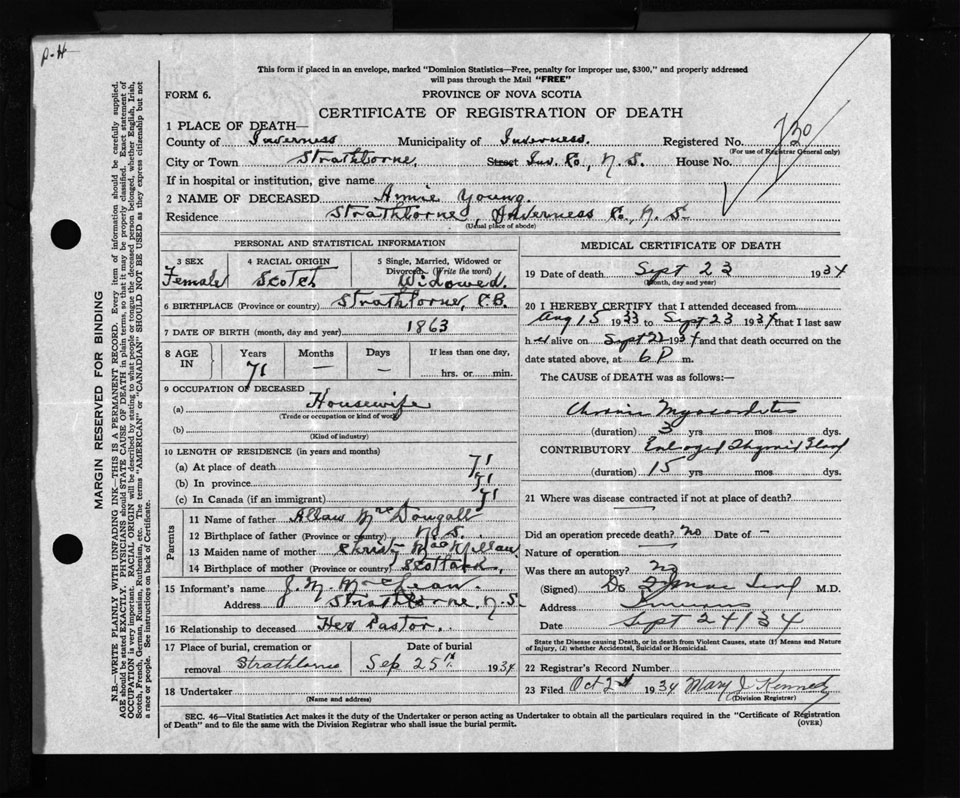 P-H
This form if placed in an envelope, marked "Dominion Statistics—Free, penalty for improper use, $300," and properly addressed
will pass through the Mail "FREE"
FORM 6.
PROVINCE OF NOVA SCOTIA
CERTIFICATE OF REGISTRATION OF DEATH
1 PLACE OF DEATH—
County of Inverness Municipality of Inverness. Registered No.
(For use of Registrar General only)
City or Town Strathlorne, Street Inv. Co., N.S. House No.
If in hospital or institution, give name
2 NAME OF DECEASED Annie Young.
Residence Strathlorne, Inverness Co., N.S.
(Usual place of abode)
PERSONAL AND STATISTICAL INFORMATION
3 SEX
Female
4 RACIAL ORIGIN
Scotch
5 Single, Married, Widowed or
Divorced (Write the word)
Widowed.
6 BIRTHPLACE (Province or country) Strathlorne, C.B.
7 DATE OF BIRTH (month, day and year) 1863
8 AGE
IN
Years
71
Months
—
Days
—
If less than one day,
hrs. or min.
9 OCCUPATION OF DECEASED
(a) Housewife
(Trade or occupation or kind of work)
(b)
(Kind of industry)
10 LENGTH OF RESIDENCE (in years and months)
(a) At place of death 71
(b) In province 71
(c) In Canada (if an immigrant) 71
Parents
11 Name of father Allan McDougall
12 Birthplace of father (Province or country) N.S.
13 Maiden name of mother Christy MacMillan
14 Birthplace of mother (Province or country) Scotland,
15 Informant's name J. N. MacLean
Address Strathlorne, N.S.
16 Relationship to deceased Her Pastor.
17 Place of burial, cremation or
removal Strathlorne
Date of burial
Sep 25th 1934
18 Undertaker
(Name and address)
MEDICAL CERTIFICATE OF DEATH
19 Date of death Sept 23 1934
(Month, day and year)
20 I HEREBY CERTIFY that I attended deceased from
Aug 15 1933 to Sept 23 1934 that I last saw
her alive on Sept 23 1934 and that death occurred on the
date stated above, at 6 P m.
The CAUSE of DEATH was as follows:—
Chronic Myocarditis
(duration) 3 yrs mos dys.
CONTRIBUTORY Enlarged Thyroid Gland
(duration) 15 yrs mos. dys.
21 Where was disease contracted if not at place of death?
Did an operation precede death? no Date of —
Nature of operation
Was there an autopsy? no
(Signed) Dr M.D.
Address Inverness
Date Sept 24/34
State the Disease causing Death, or in death from Violent Causes, state (1) Means and Nature
of Injury, (2) whether Accidental, Suicidal or Homicidal.
22 Registrar's Record Number
23 Filed Oct 2nd 1934 Mary J Kennedy
(Division Registrar)
SEC. 46—Vital Statistics Act makes it the duty of the Undertaker or person acting as Undertaker to obtain all the particulars required in the "Certificate of Registration
of Death" and to file the same with the Division Registrar who shall issue the burial permit.
(OVER)
MARGIN RESERVED FOR BINDING
N.B.—WRITE PLAINLY WITH UNFADING INK—THIS IS A PERMANENT RECORD. Every item of information should be carefully supplied.
AGE should be stated EXACTLY. PHYSICIANS should STATE CAUSE OF DEATH in plain terms, so that it may be properly classified. Exact statement of
OCCUPATION is very important. RACIAL ORIGIN will be described by stating to what people or tongue the deceased person belonged, whether English, Irish,
Scotch, French, German, Russian, Ruthenian, etc. The terms "AMERICAN" or "CANADIAN" SHOULD NOT BE USED as they express citizenship but not
a race or people. See instructions on back of Certificate.